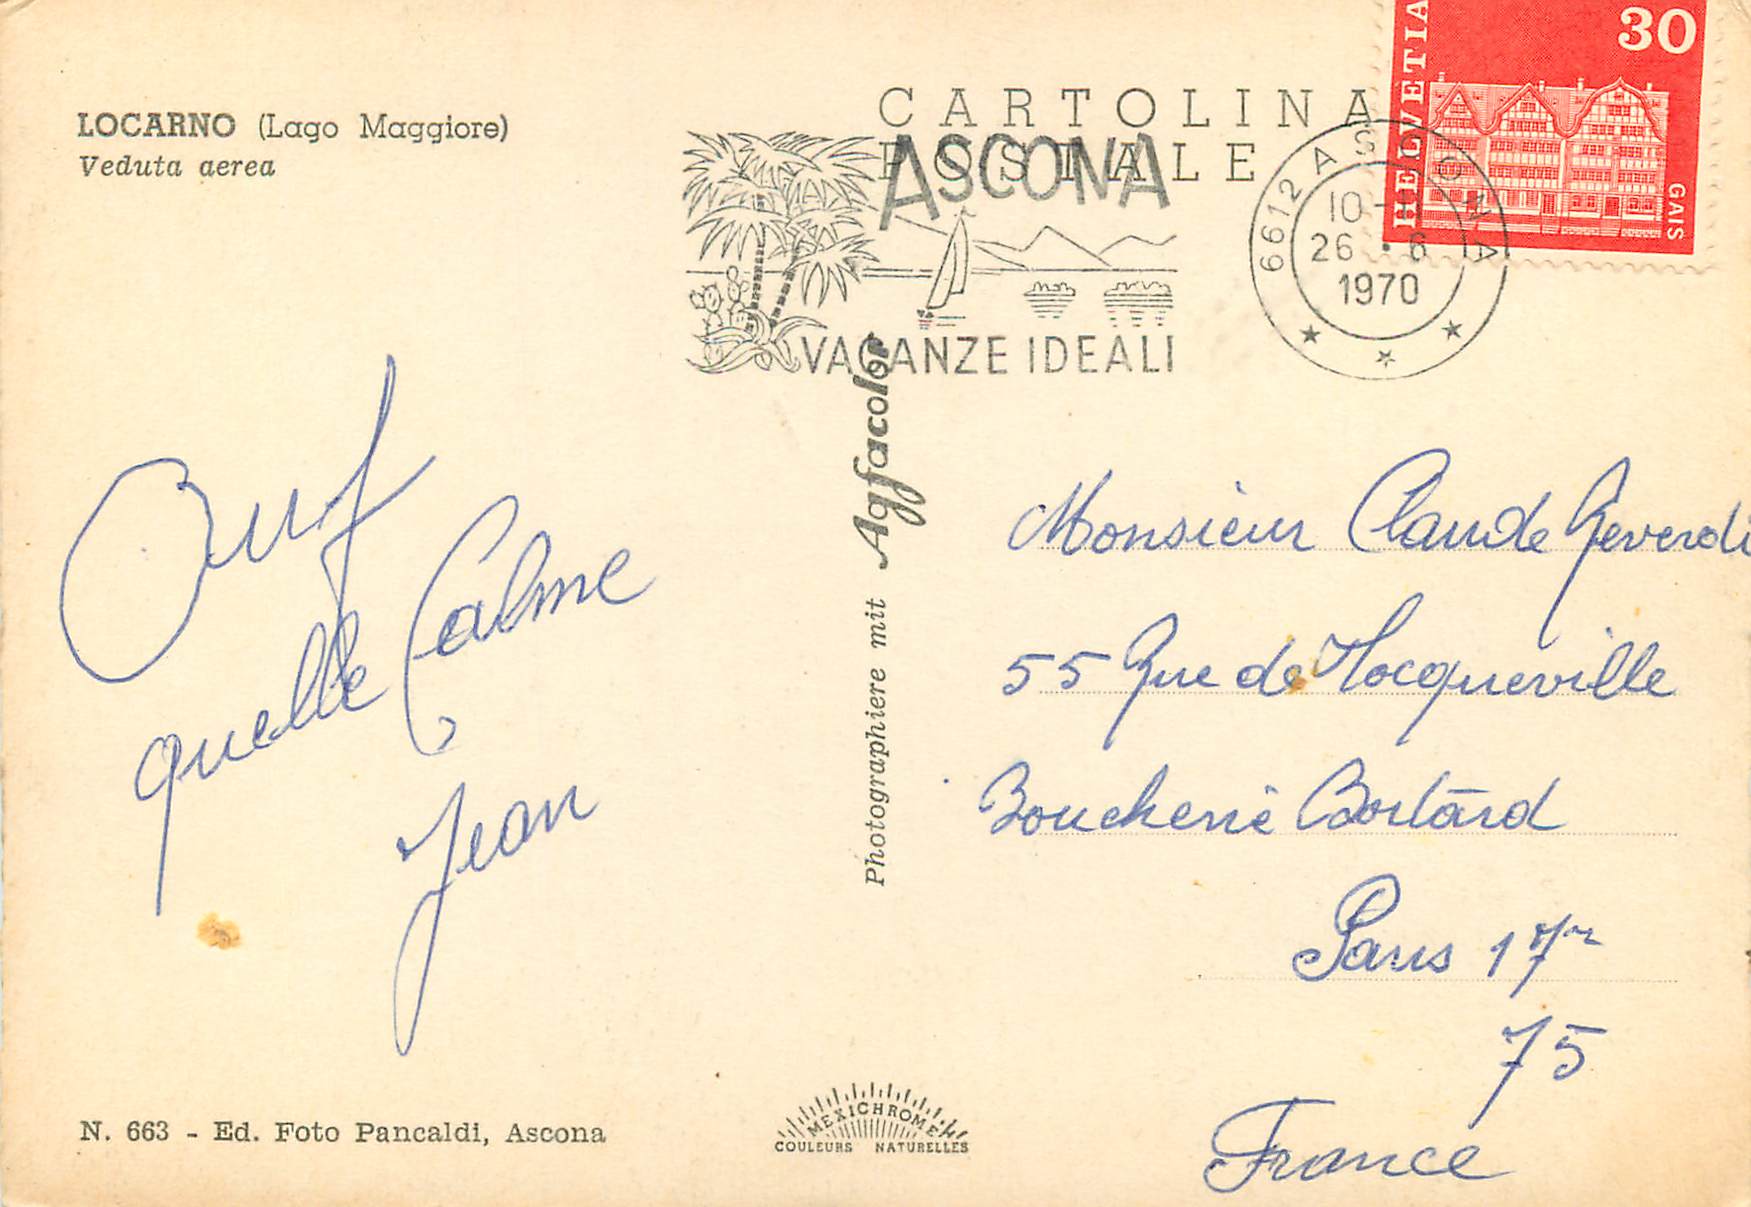 LOCARNO (Lago Maggiore)
Veduta aerea
CARTOLINA
POSTALE
ASCONA
VACANZE IDEALI
6612 ASCONA
10-
26.6
1970
HELVETIA
30
GAIS
Ouf
quelle Calme
Jean
Photographiere mit Agfacolor
Monsieur Claude Reverdi
55 Rue de Tocqueville
Boucherie
Paris 17
75
France
N. 663 - Ed. Foto Pancaldi, Ascona
MEXICHROME
COULEURS NATURELLES